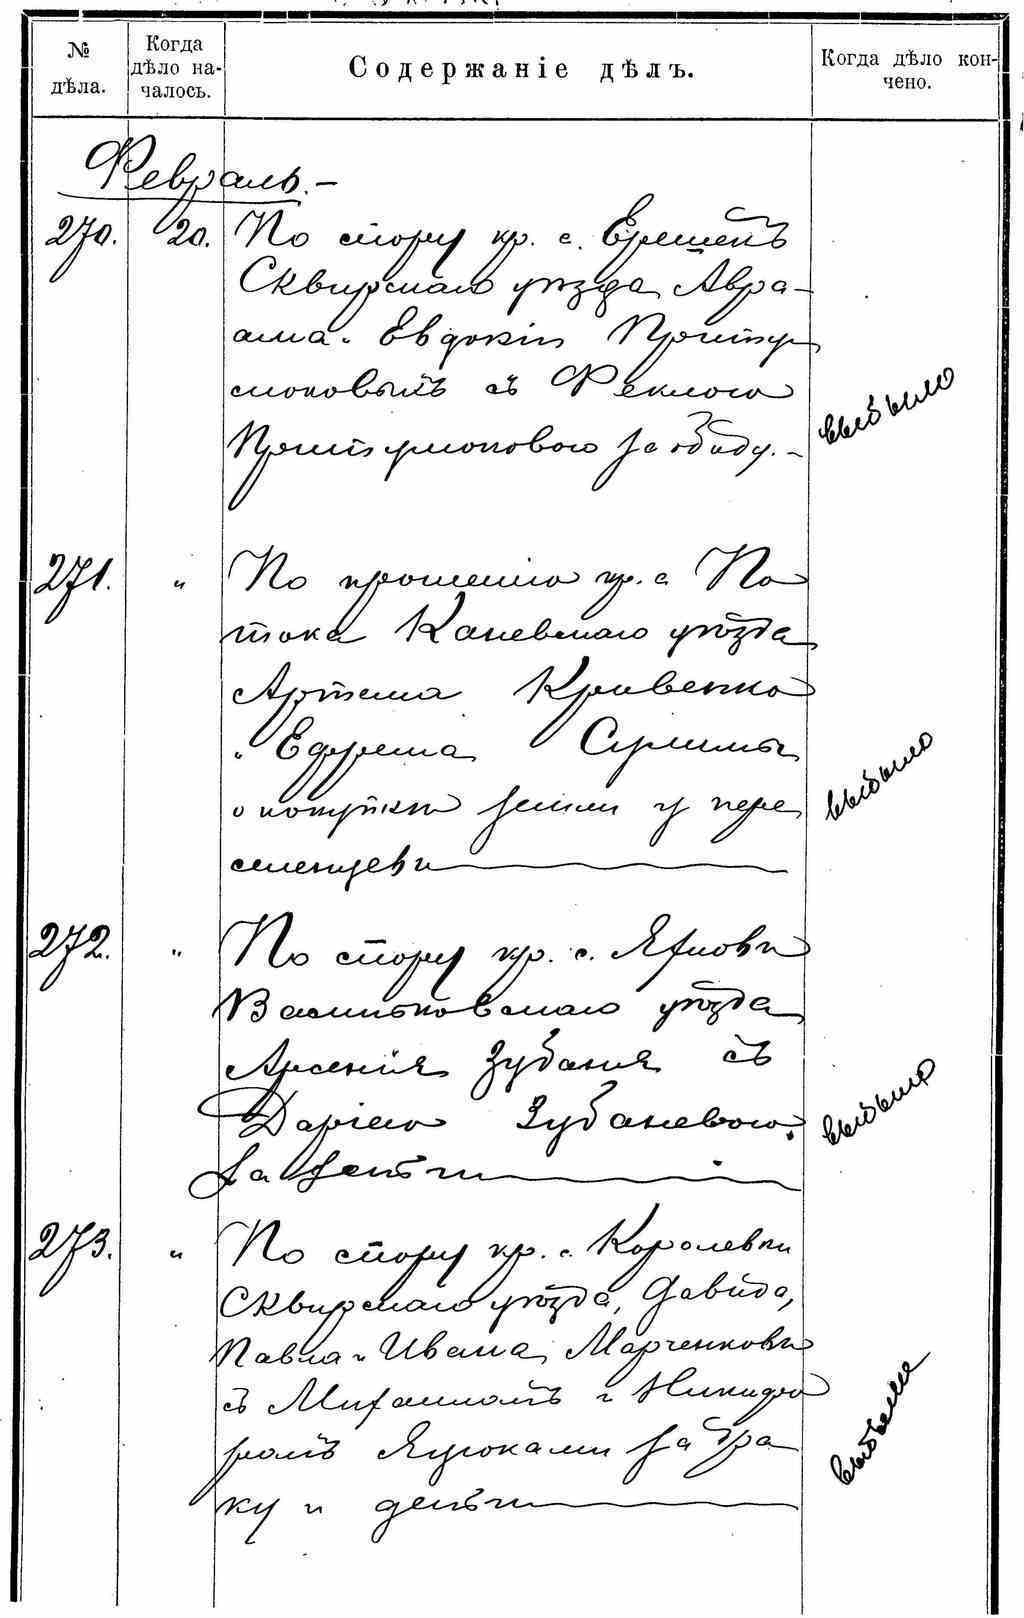 № дѣла.
Когда дѣло на-
чалось.
Содержаніе дѣлъ.
Когда дѣло кон-
чено.
Февраль.-
270. 20. По спору кр. с.
Сквирскаго уѣзда Авра-
ама и Евдокіи
съ Феклою
за обиду.-
выбыло
271. " По прошенію кр. с. По
тока Каневскаго уѣзда
Артема Кривенко
и Ефрема
о покупкѣ земли у пере
селенцевъ
выбыло
272. " По спору кр. с.
Васильковскаго уѣзда
Арсенія Зубаня съ
Даріею Зубаневою.
за
выбыло
273. " По спору кр. с. Королевки
Сквирскаго уѣзда, Давида,
Павла и Ивана Марченковъ
съ Михаиломъ и Никифо
ромъ Яцюками за дра
ку и
выбыло